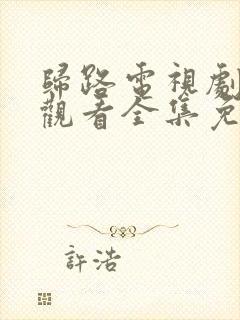 歸路電視劇
觀看全集免
許浩